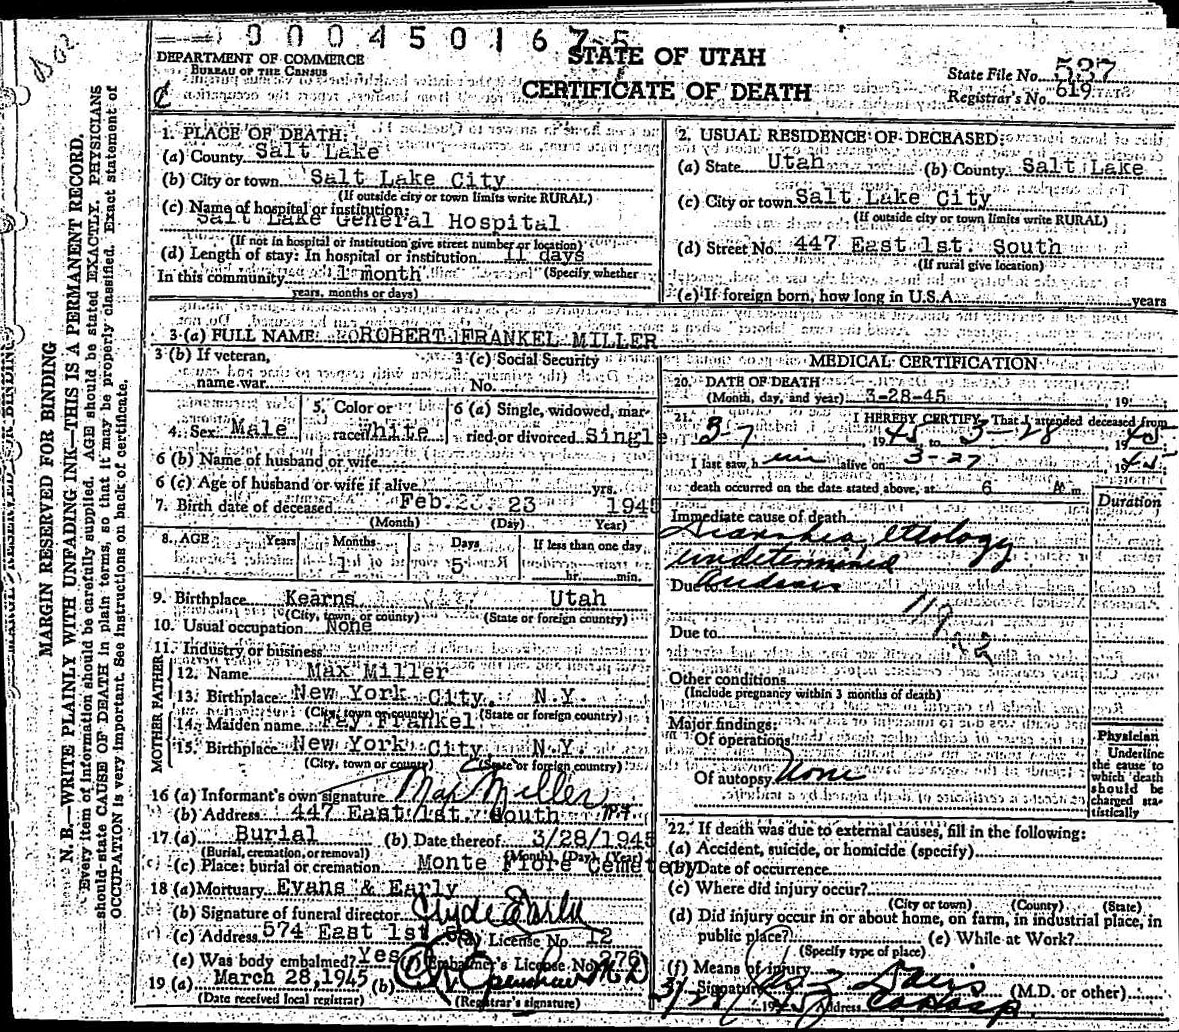 0 0 0 4 5 0 1 6 7 5
DEPARTMENT OF COMMERCE
BUREAU OF THE CENSUS
STATE OF UTAH
CERTIFICATE OF DEATH
State File No. 537
Registrar's No. 619
MARGIN RESERVED FOR BINDING
N. B.—WRITE PLAINLY WITH UNFADING INK—THIS IS A PERMANENT RECORD.
Every item of information should be carefully supplied. AGE should be stated EXACTLY. PHYSICIANS
should state CAUSE OF DEATH in plain terms, so that it may be properly classified. Exact statement of
OCCUPATION is very important. See instructions on back of certificate.
1. PLACE OF DEATH:
(a) County Salt Lake
(b) City or town Salt Lake City
(If outside city or town limits write RURAL)
(c) Name of hospital or institution:
Salt Lake General Hospital
(If not in hospital or institution give street number or location)
(d) Length of stay: In hospital or institution 11 days
In this community 1 month (Specify whether
years, months or days)
2. USUAL RESIDENCE OF DECEASED:
(a) State Utah (b) County Salt Lake
(c) City or town Salt Lake City
(If outside city or town limits write RURAL)
(d) Street No. 447 East 1st. South
(If rural give location)
(e) If foreign born, how long in U.S.A. years
3 (a) FULL NAME ROBERT FRANKEL MILLER
3 (b) If veteran,
name war
3 (c) Social Security
No.
4. Sex Male
5. Color or
race White
6 (a) Single, widowed, mar-
ried or divorced Single
6 (b) Name of husband or wife
6 (c) Age of husband or wife if alive yrs.
7. Birth date of deceased Feb. 23 1945
(Month) (Day) Year)
8. AGE Years Months Days If less than one day
1 5 hr. min.
9. Birthplace Kearns Utah
(City, town, or county) (State or foreign country)
10. Usual occupation None
11. Industry or business
FATHER
12. Name Max Miller
13. Birthplace New York City, N.Y.
(City, town or county) (State or foreign country)
MOTHER
14. Maiden name Fay Frankel
15. Birthplace New York City N.Y.
(City, town or county) (State or foreign country)
16 (a) Informant's own signature Max Miller
(b) Address 447 East 1st. South
17. (a) Burial (b) Date thereof 3/28/1945
(Burial, cremation, or removal) (Month) (Day) (Year)
(c) Place: burial or cremation Monte Fiore Cemetery
18 (a) Mortuary Evans & Early
(b) Signature of funeral director Clyde Early
(c) Address 574 East 1st So (d) License No. 12
(e) Was body embalmed? Yes (f) Embalmer's License No. 276
19 (a) March 28, 1945 (b) M.D.
(Date received local registrar) (Registrar's signature)
MEDICAL CERTIFICATION
20. DATE OF DEATH
(Month, day, and year) 3-28-45 19
21. I HEREBY CERTIFY, That I attended deceased from
3-7 1945 to 3-28 1945
I last saw him alive on 3-27 1945
death occurred on the date stated above, at 6 m.
Duration
Immediate cause of death
Diarrhea, etiology
undetermined
Due to
119
Due to
Other conditions
(Include pregnancy within 3 months of death)
Major findings:
Of operations
Of autopsy None
Physician
Underline
the cause to
which death
should be
charged sta-
tistically
22. If death was due to external causes, fill in the following:
(a) Accident, suicide, or homicide (specify)
(b) Date of occurrence
(c) Where did injury occur?
(City or town) (County) (State)
(d) Did injury occur in or about home, on farm, in industrial place, in
public place? (e) While at Work?
(Specify type of place)
(f) Means of injury
Signature (M.D. or other)
3/28/1945 Address Co Hosp